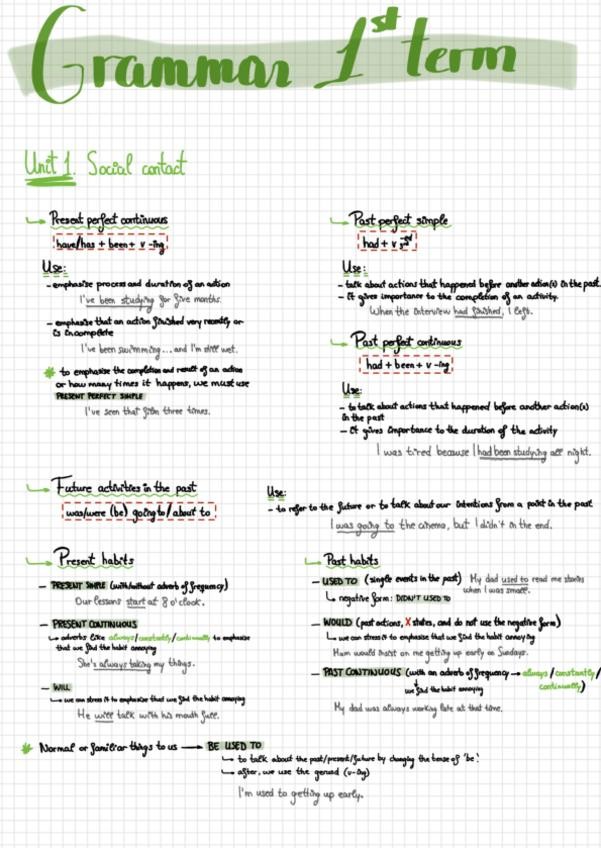 Grammar 1st term
Unit 1. Social contact
Present perfect continuous
have/has + been + v -ing
Use:
- emphasise process and duration of an action
I've been studying for five months.
- emphasise that an action finished very recently or
is incomplete
I've been swimming... and I'm still wet.
* to emphasise the completion and result of an action
or how many times it happens, we must use
PRESENT PERFECT SIMPLE
I've seen that film three times.
Past perfect simple
had + v
Use:
- talk about actions that happened before another action(s) in the past.
- it gives importance to the completion of an activity.
When the interview had finished, I left.
Past perfect continuous
had + been + v -ing
Use:
- to talk about actions that happened before another action(s)
in the past
- it gives importance to the duration of the activity
I was tired because I had been studying all night.
Future activities in the past
was/were (be) going to / about to
Use:
- to refer to the future or to talk about our intentions from a point in the past
I was going to the cinema, but I didn't in the end.
Present habits
- PRESENT SIMPLE (with/without adverb of frequency)
Our lessons start at 8 o'clock.
- PRESENT CONTINUOUS
adverbs like always/constantly/continually to emphasise
that we find the habit annoying
She's always taking my things.
- WILL
we can stress it to emphasise that we find the habit annoying
He will talk with his mouth full.
Past habits
- USED TO (single events in the past) My dad used to read me stories
when I was small.
negative form: DIDN'T USED TO
- WOULD (past actions, X states, and do not use the negative form)
we can stress it to emphasise that we find the habit annoying
Mum would insist on me getting up early on Sundays.
- PAST CONTINUOUS (with an adverb of frequency → always/constantly/
continually)
we find the habit annoying
My dad was always working late at that time.
* Normal or familiar things to us → BE USED TO
to talk about the past/present/future by changing the tense of 'be'
after, we use the gerund (v-ing)
I'm used to getting up early.